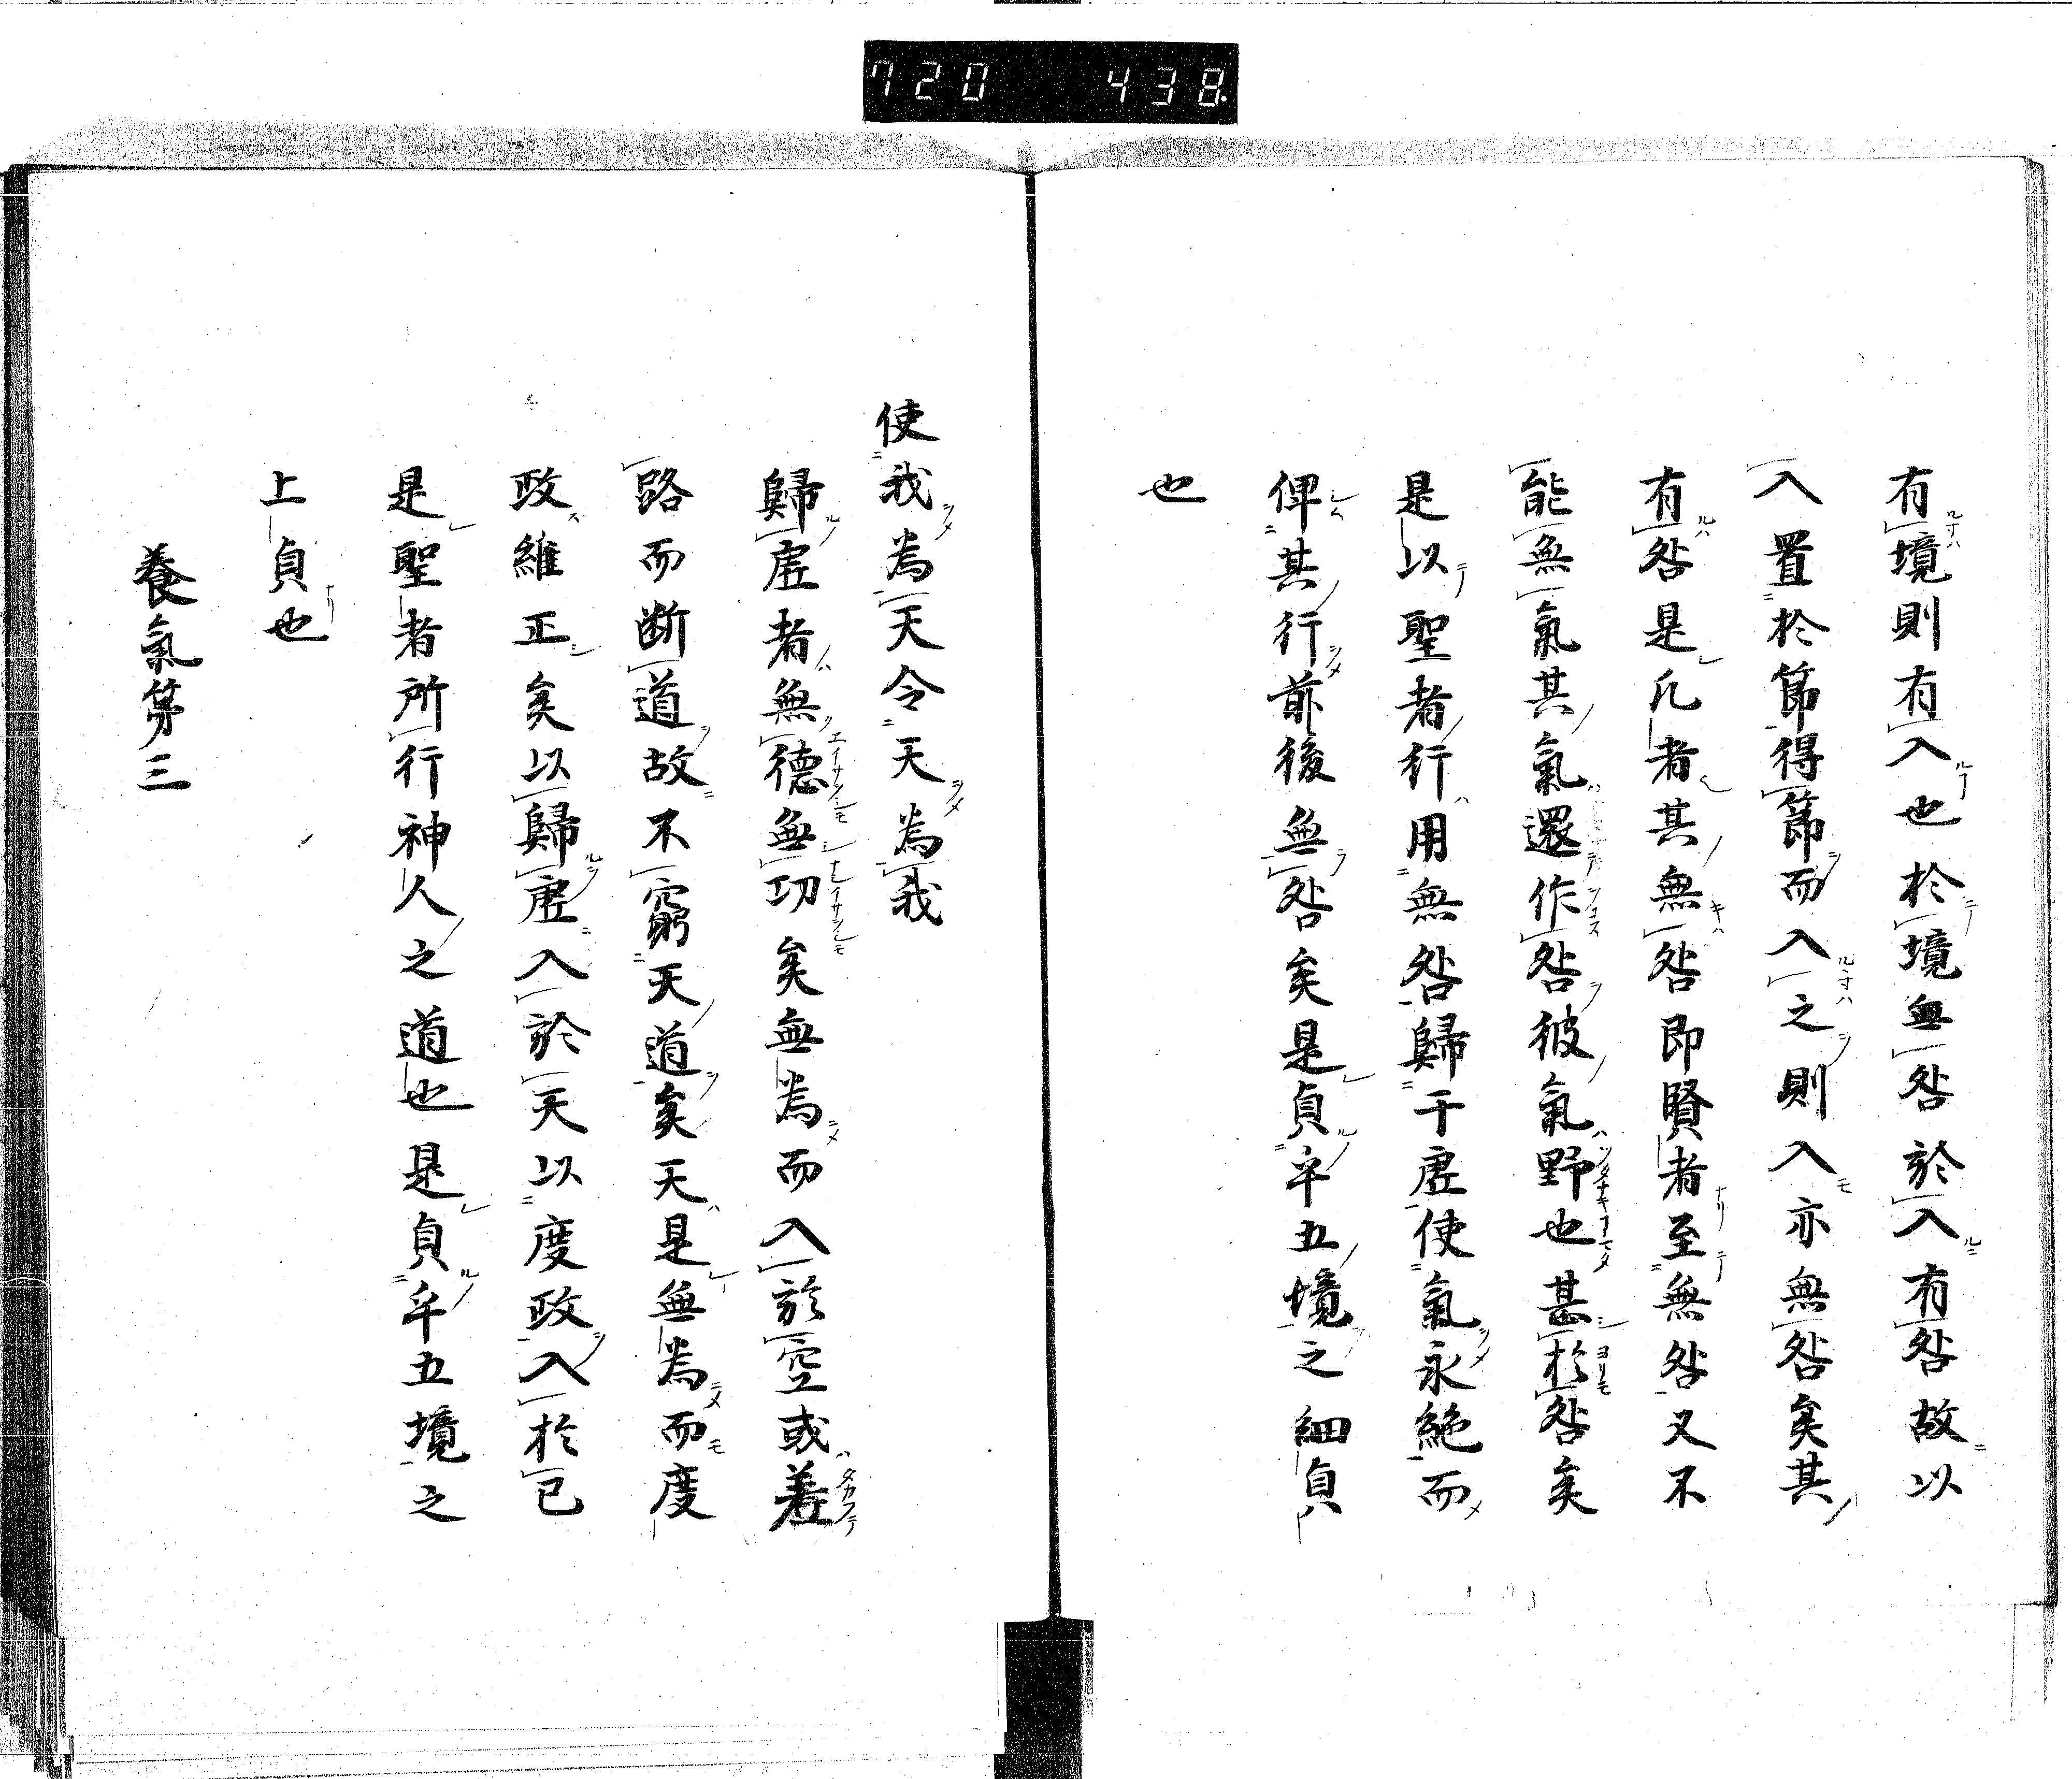 720 438
有境則有入也於境無咎於入有咎故以
入置於節得節而入之則入亦無咎矣其
有咎是凡者其無咎即賢者至無咎又不
能無氣其氣還作咎彼氣野也甚於咎矣
是以聖者行用無咎歸于虛使氣永絶而
俾其行前後無咎矣是貞乎五境之細貞
也
使我為天令天為我
歸虛者無德無功矣無為而入於空或差
路而断道故不窮天道矣天是無為而度
政維正矣以歸虛入於天以度政入於已
是聖者所行神人之道也是貞乎五境之
上貞也
養氣第三